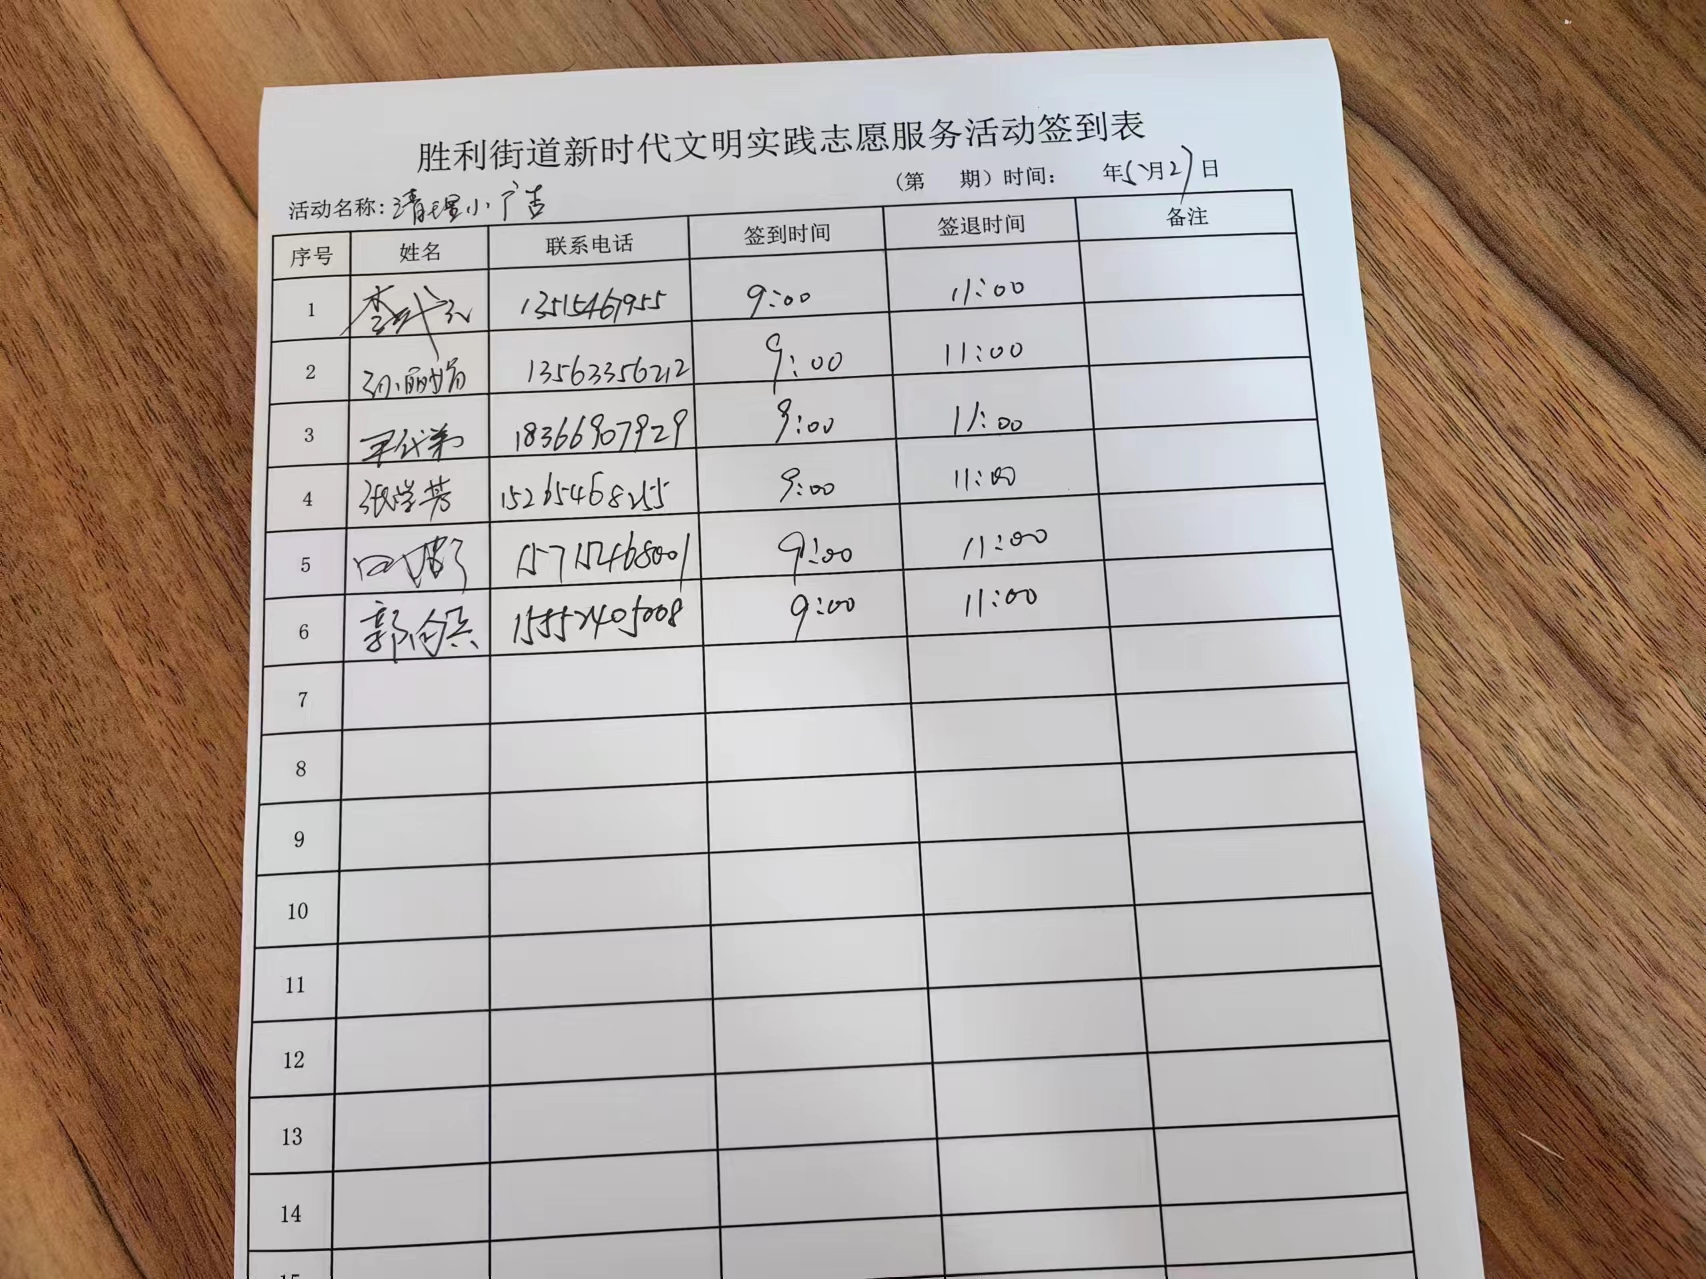 胜利街道新时代文明实践志愿服务活动签到表
活动名称:清理小广告 (第 期)时间: 年 月 日
序号 姓名 联系电话 签到时间 签退时间 备注
1 9:00 11:00
2 孙丽娟 13563356212 9:00 11:00
3 18366907929 9:00 11:00
4 张学芳 15265468255 9:00 11:00
5 15715468001 9:00 11:00
6 15552405008 9:00 11:00
7
8
9
10
11
12
13
14
15